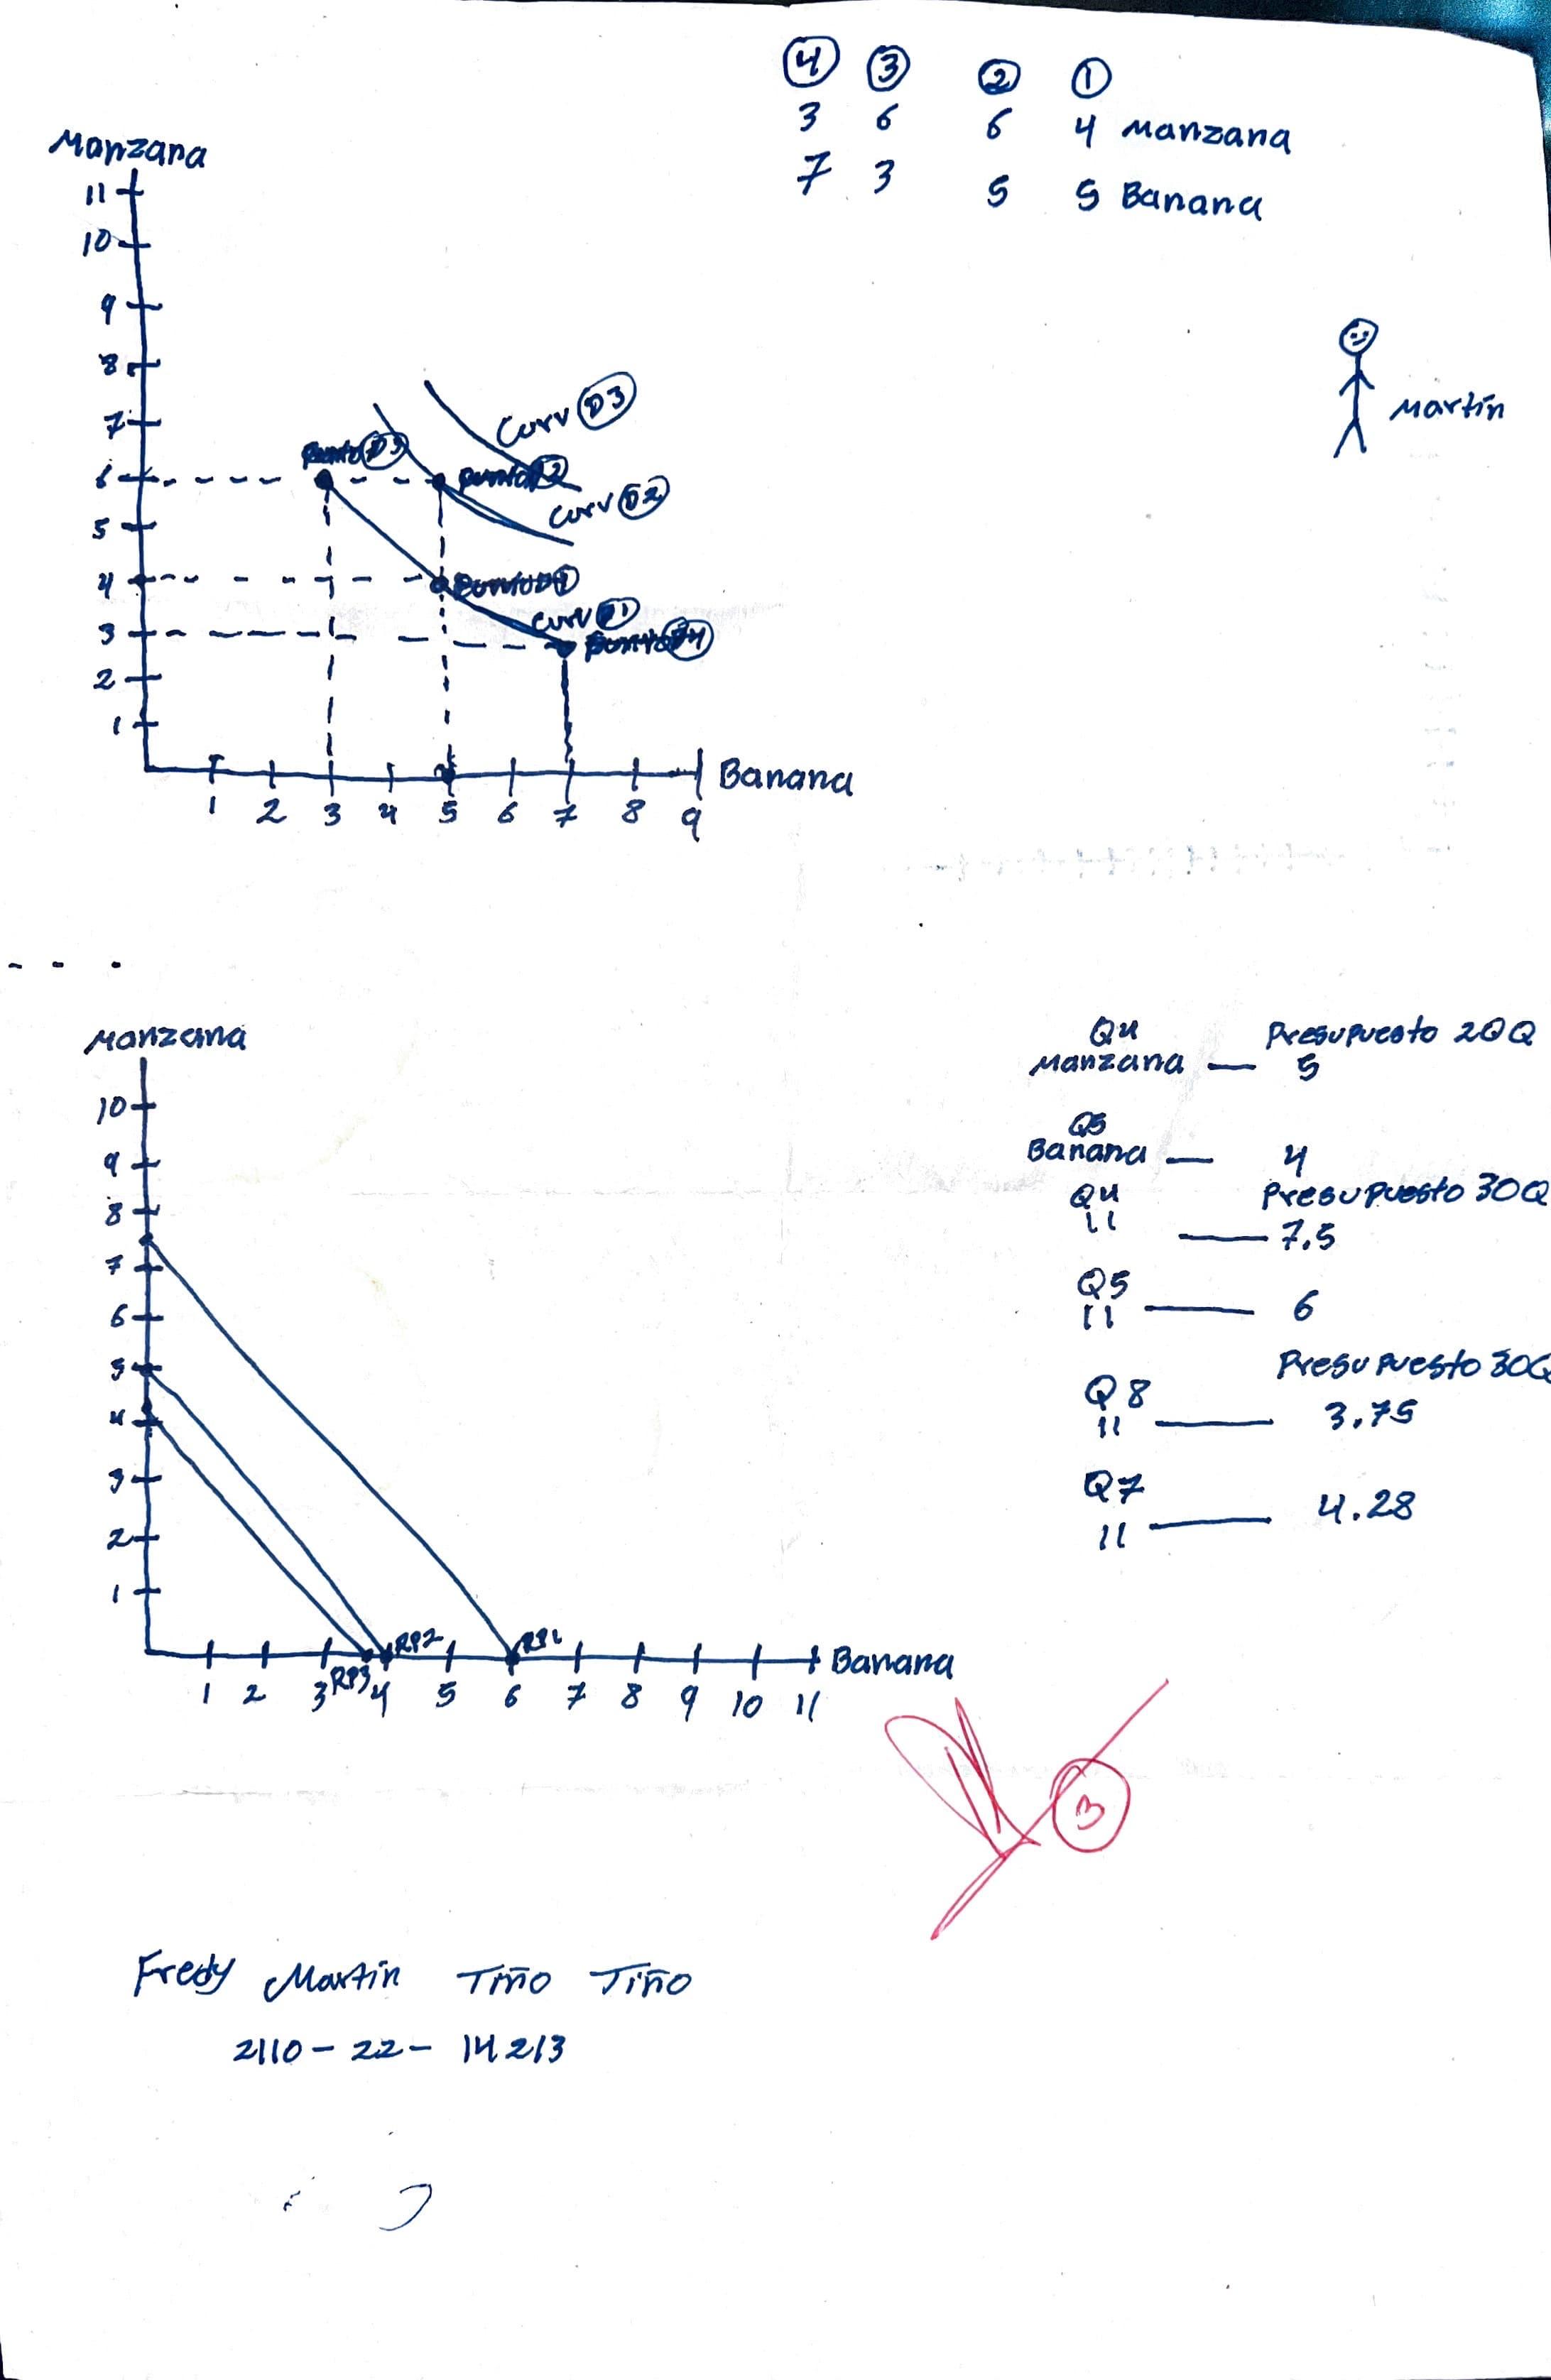 ④ ③ ② ①
3 6 6 4 Manzana
7 3 5 5 Banana
Manzana
11
10
9
8
7
6
5
4
3
2
1
Curv D3
Punto D3
Punto D2
Curv D2
Punto D1
Curv D1
Punto D4
1 2 3 4 5 6 7 8 9
Banana
Martín
Manzana
10
9
8
7
6
5
4
3
2
1
RP3 RP2 RP1
1 2 3 4 5 6 7 8 9 10 11
Banana
Q4 Presupuesto 20Q
Manzana — 5
Q5
Banana — 4
Q4 Presupuesto 30Q
11 — 7.5
Q5
11 — 6
Presupuesto 30Q
Q8
11 — 3.75
Q7
11 — 4.28
Fredy Martín Tiño Tiño
2110-22-14213